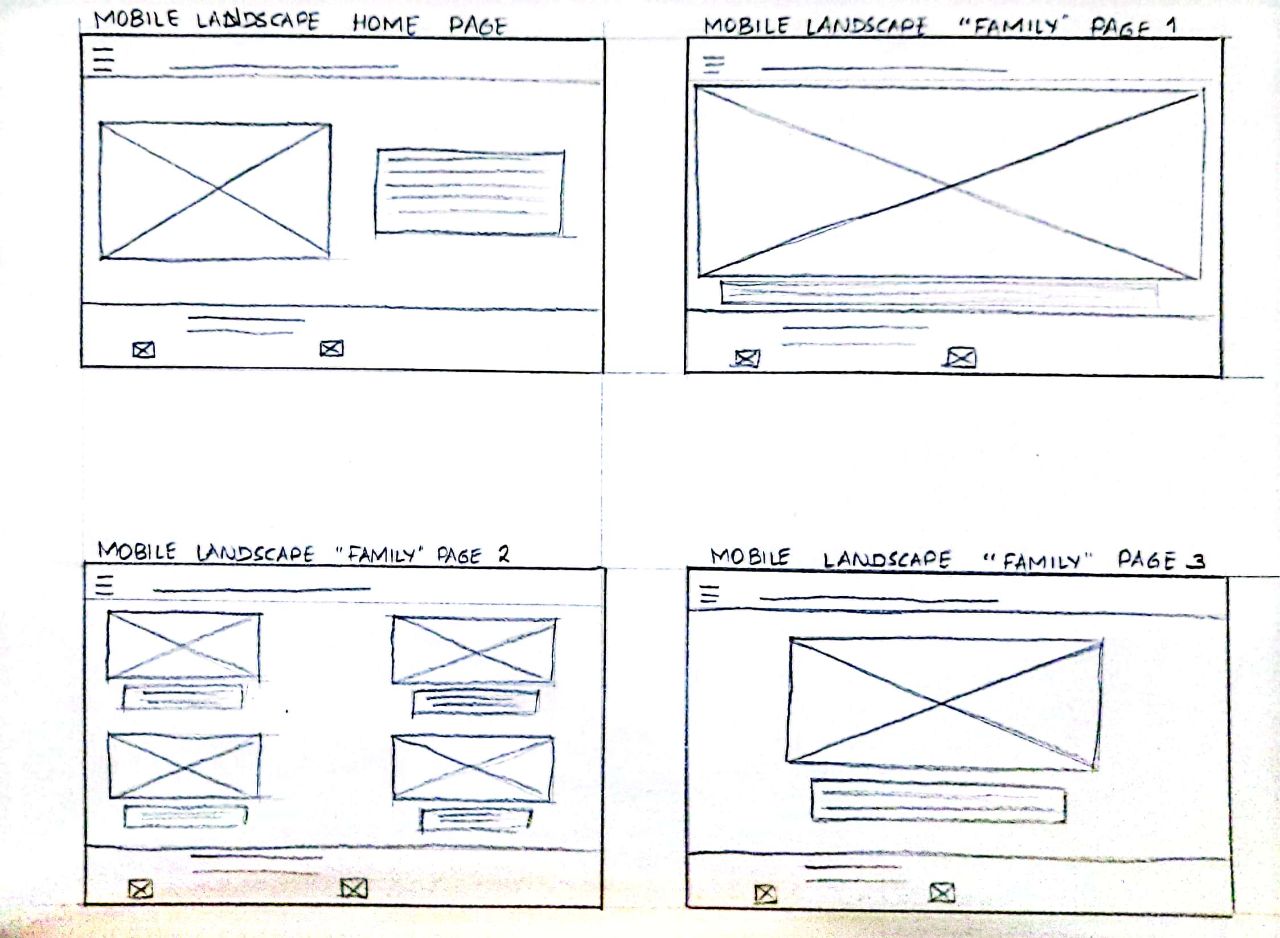 MOBILE LANDSCAPE HOME PAGE
MOBILE LANDSCAPE "FAMILY" PAGE 1
MOBILE LANDSCAPE "FAMILY" PAGE 2
MOBILE LANDSCAPE "FAMILY" PAGE 3